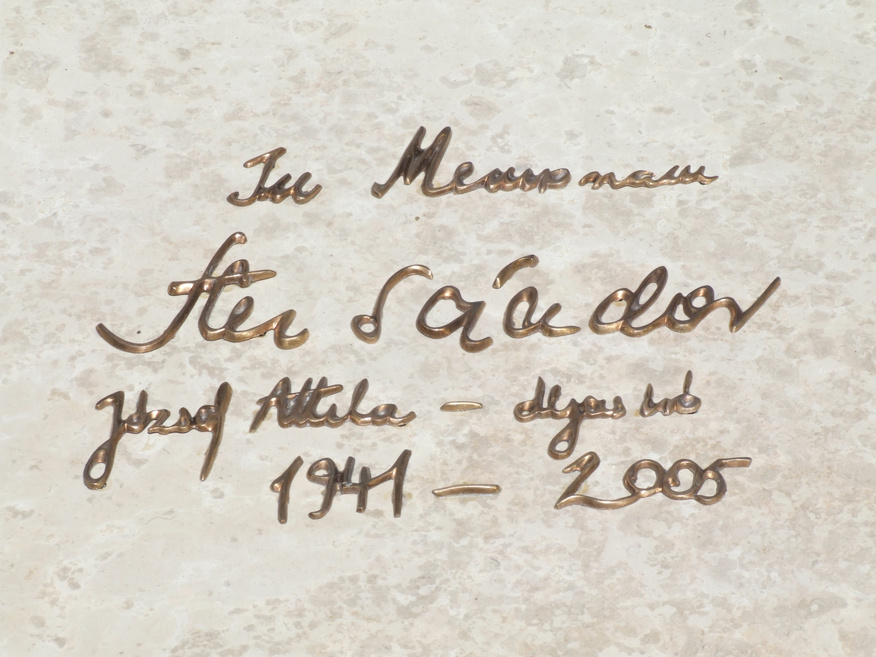 In Memoriam
Tar Sándor
József Attila – díjas író
1941 – 2005